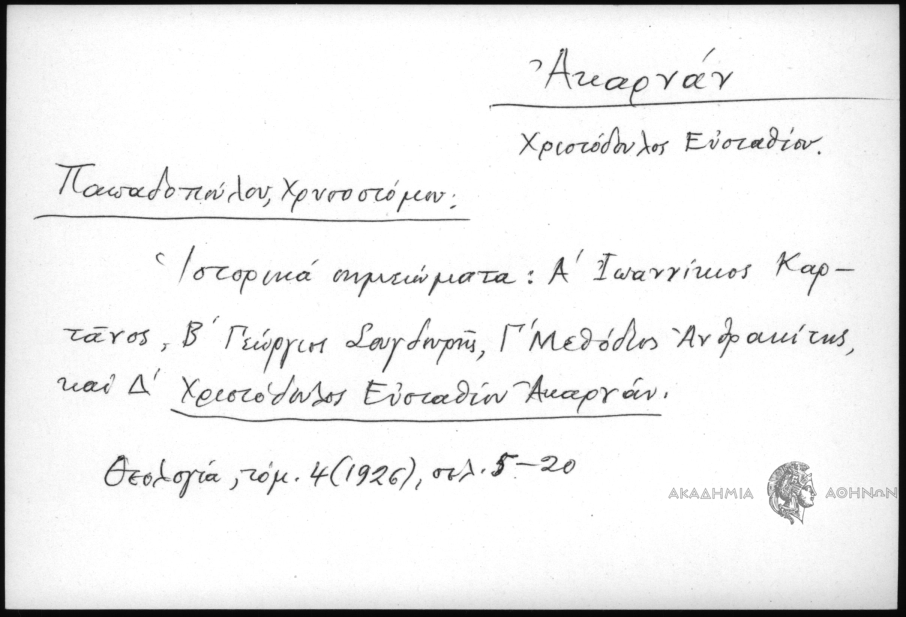 Ἀκαρνάν
Χριστόδουλος Εὐσταθίου.
Παπαδοπούλου, Χρυσοστόμου:
Ἱστορικά σημειώματα: Α΄ Ἰωαννίκιος Καρ-
τᾶνος, Β΄ Γεώργιος Σουγδουρῆς, Γ΄ Μεθόδιος Ἀνθρακίτης,
καὶ Δ΄ Χριστόδουλος Εὐσταθίου Ἀκαρνάν.
Θεολογία, τόμ. 4 (1926), σελ. 5-20
ΑΚΑΔΗΜΙΑ ΑΘΗΝΩΝ